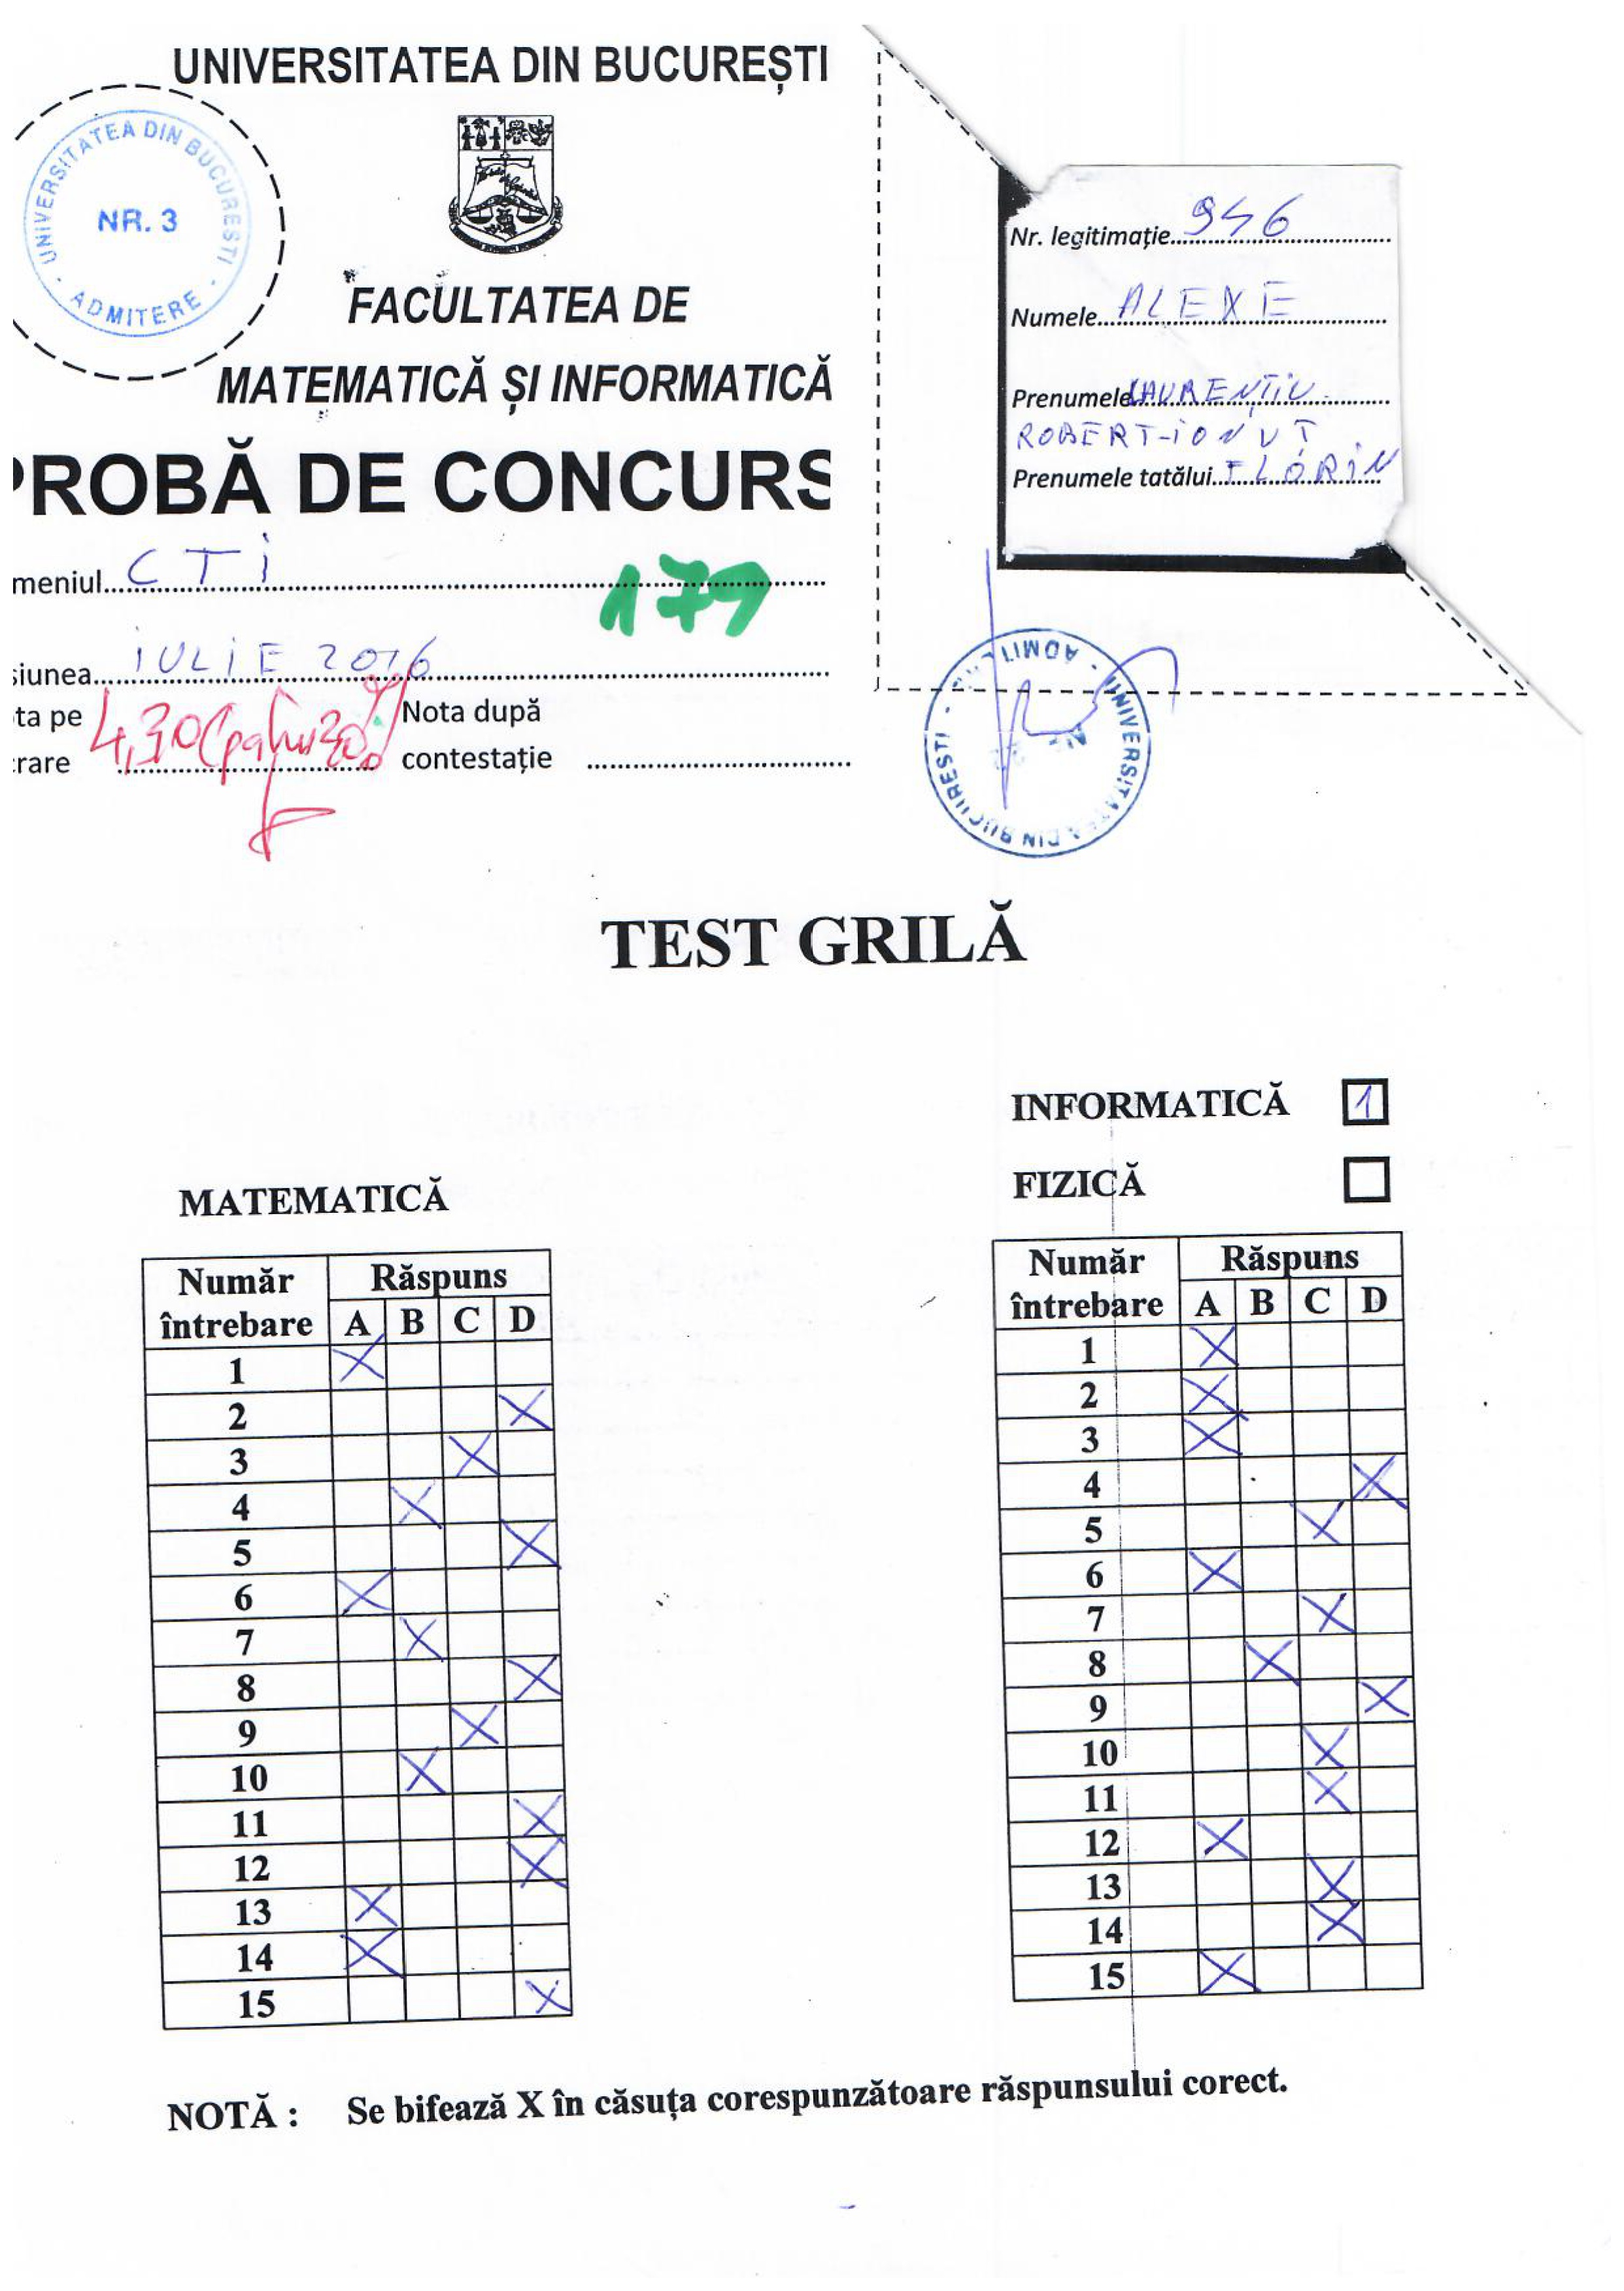 UNIVERSITATEA DIN BUCUREȘTI
UNIVERSITATEA DIN BUCURESTI
NR. 3
ADMITERE
FACULTATEA DE
MATEMATICĂ ȘI INFORMATICĂ
PROBĂ DE CONCURS
meniul CTI
179
siunea IULIE 2016
ta pe
rare 4,30 (patru 30%)
Nota după
contestație
Nr. legitimație 946
Numele ALEXE
Prenumele LAURENȚIU
ROBERT-IONUȚ
Prenumele tatălui FLORIN
UNIVERSITATEA DIN BUCURESTI
TEST GRILĂ
INFORMATICĂ 1
FIZICĂ
MATEMATICĂ
Număr întrebare Răspuns
A B C D
1 X
2 X
3 X
4 X
5 X
6 X
7 X
8 X
9 X
10 X
11 X
12 X
13 X
14 X
15 X
Număr întrebare Răspuns
A B C D
1 X
2 X
3 X
4 X
5 X
6 X
7 X
8 X
9 X
10 X
11 X
12 X
13 X
14 X
15 X
NOTĂ : Se bifează X în căsuța corespunzătoare răspunsului corect.